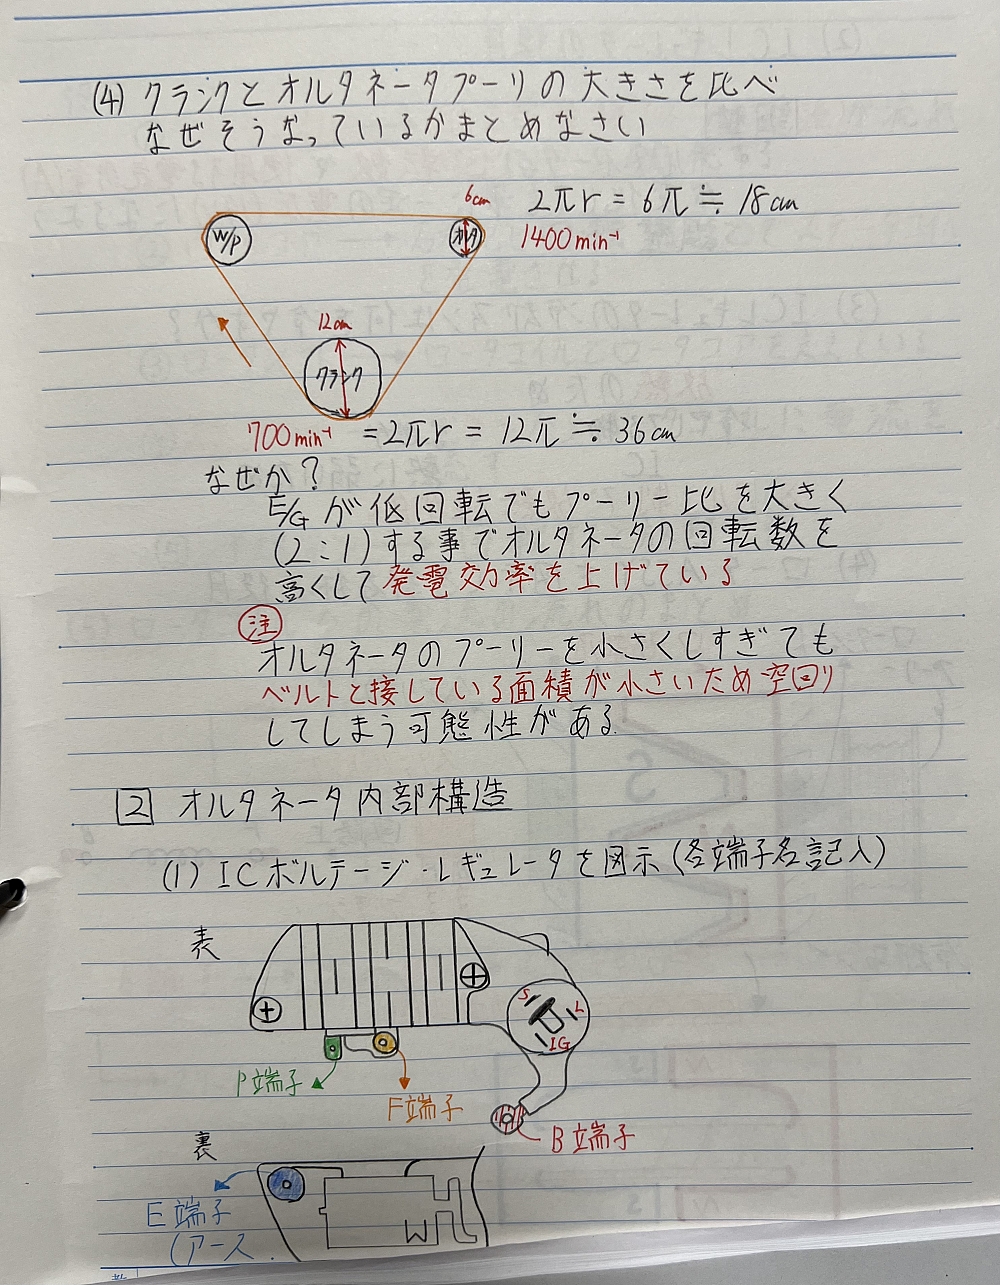 (4) クランクとオルタネータプーリの大きさを比べ
なぜそうなっているかまとめなさい
6cm
2πr = 6π ≒ 18cm
W/P
オルタ
1400min⁻¹
12cm
クランク
700min⁻¹ = 2πr = 12π ≒ 36cm
なぜか?
E/Gが低回転でもプーリー比を大きく
(2:1)する事でオルタネータの回転数を
高くして発電効率を上げている
注
オルタネータのプーリーを小さくしすぎても
ベルトと接している面積が小さいため空回り
してしまう可能性がある.
2 オルタネータ内部構造
(1) ICボルテージ・レギュレータを図示(各端子名記入)
表
S
L
IG
P端子
F端子
B端子
裏
E端子
(アース